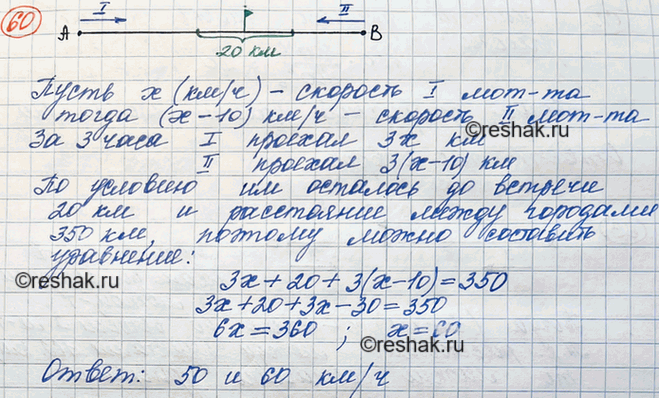 60
I II
A B
20 км
Пусть x (км/ч) – скорость I мот-та
тогда (x-10) км/ч – скорость II мот-та
За 3 часа I проехал 3x км
II проехал 3(x-10) км
По условию им осталось до встречи
20 км и расстояние между городами
350 км, поэтому можно составить
уравнение:
3x + 20 + 3(x-10) = 350
3x + 20 + 3x - 30 = 350
6x = 360 ; x = 60
Ответ: 50 и 60 км/ч
©reshak.ru
©reshak.ru
©reshak.ru
©reshak.ru